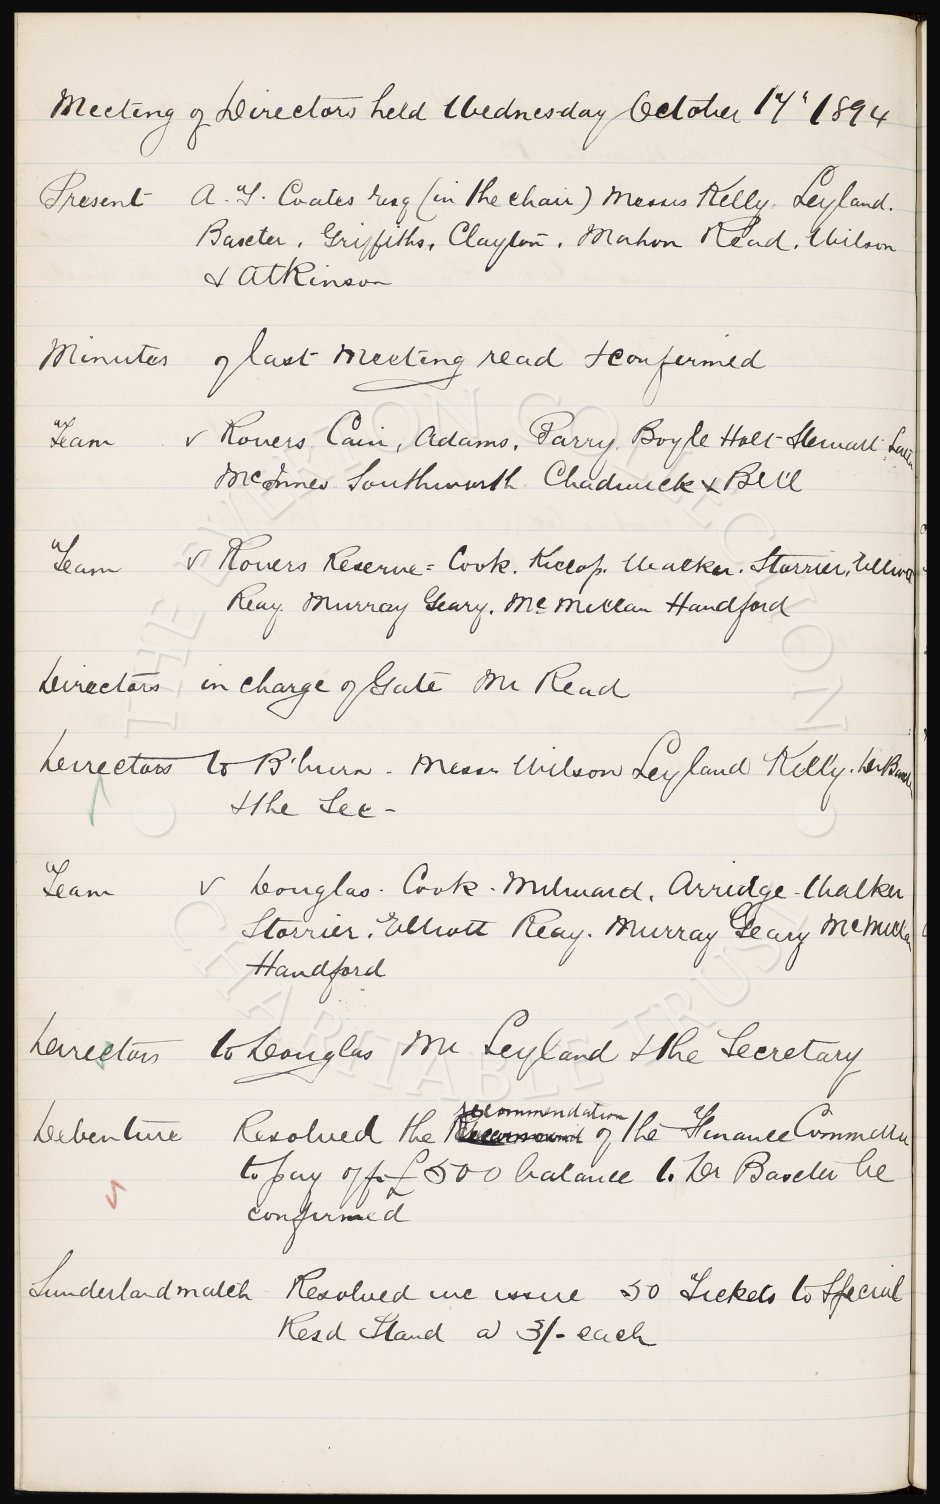 Meeting of Directors held Wednesday October 17" 1894
Present A. T. Coates Esq (in the chair) Messrs Kelly. Leyland.
Baxter. Griffiths, Clayton. Mahon Read. Wilson
& Atkinson
Minutes of last meeting read & confirmed
Team v Rovers Cain, Adams, Parry Boyle Holt Stewart
McInnes Southworth Chadwick & Bell
Team v Rovers Reserve = Cook. Walker. Storrier. Elliott
Reay. Murray Geary. McMillan Handford
Directors in charge of Gate Mr Read
Directors to B'burn. Messrs Wilson Leyland Kelly. Dr Baxter
& the Sec -
Team v Douglas. Cook. Milward. Arridge. Walker
Storrier. Elliott Reay. Murray Geary McMillan
Handford
Directors to Douglas Mr Leyland & the Secretary
Debenture Resolved the recommendation of the Finance Committee
to pay off £500 balance to Dr Baxter be
confirmed
Sunderland match Resolved we issue 50 Tickets to Special
Resd Stand @ 3/- each
© THE EVERTON COLLECTION
CHARITABLE TRUST